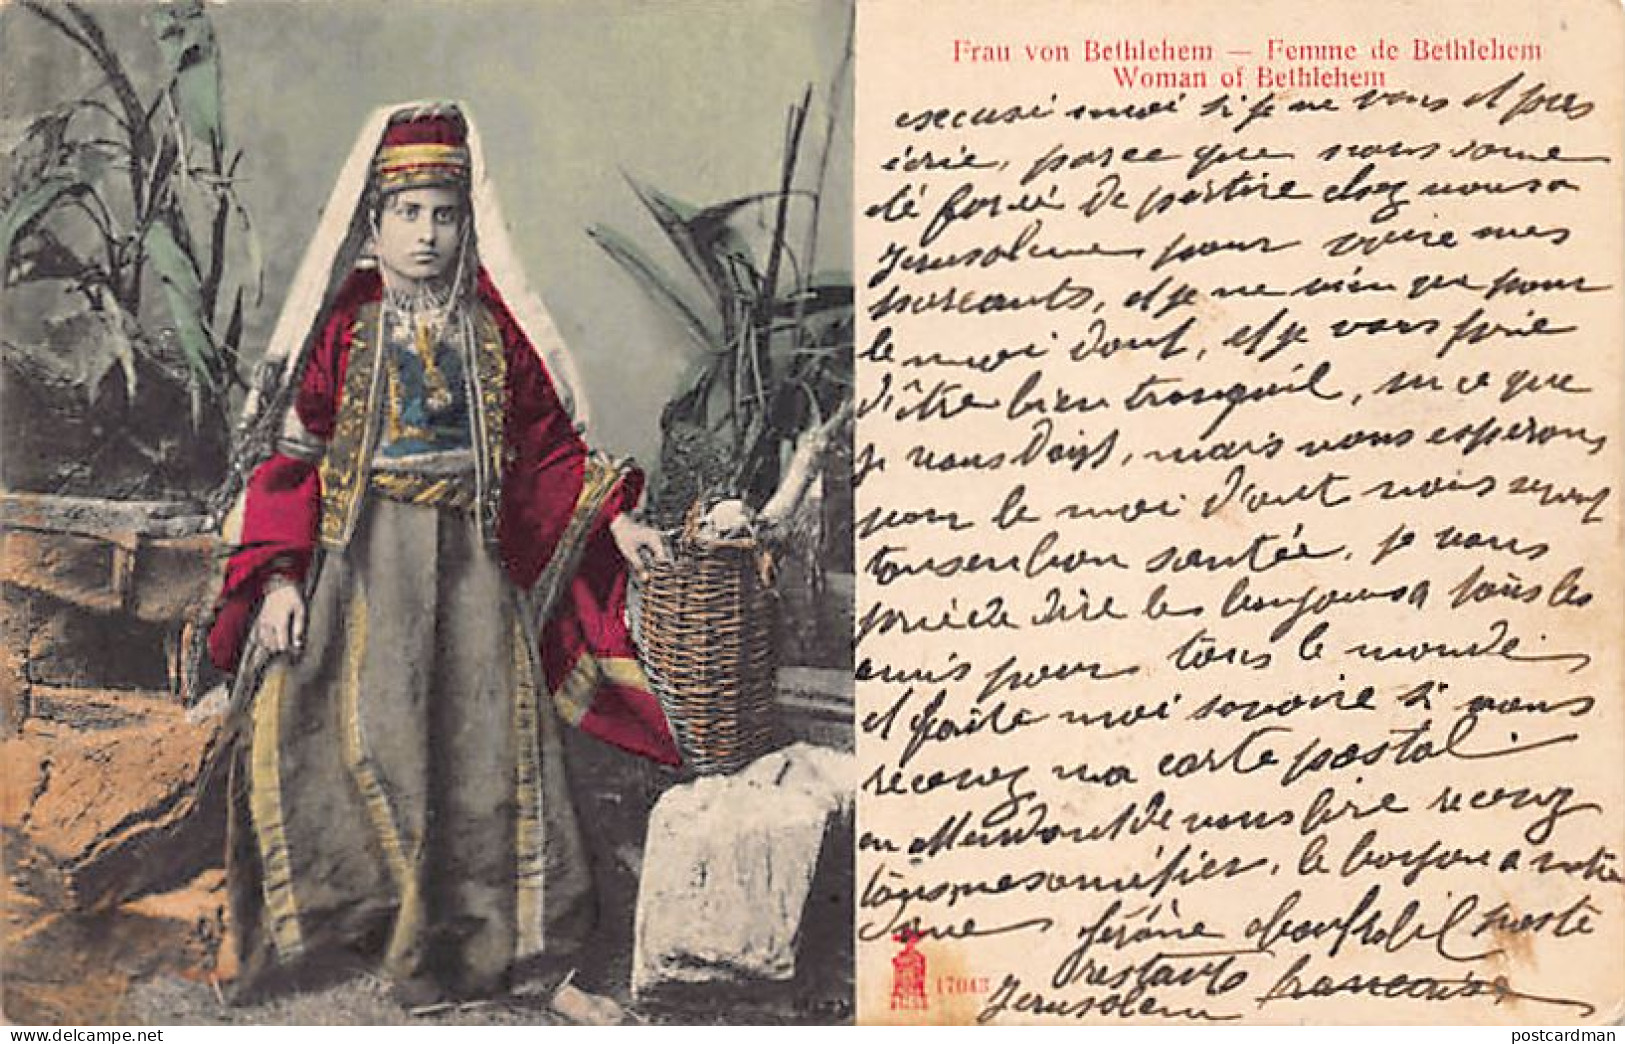 Frau von Bethlehem — Femme de Bethlehem
Woman of Bethlehem
excusé moi si je ne vous et pres
écrie, parce que nous some
té forcé de partire chez nous a
Jerusoleme pour voire mes
parcants, et je ne vien que pour
le moi d'out, et je vous prie
d'être bien tranquil, su ce que
je vous doigt, mais nous esperons
pour le moi d'out nous seront
tousenbon santée, je vous
prie de dire les bonjours a tous les
amis pour tous le monde
et faite moi savoire si vous
recevez ma carte postal.
en attendant de vous lire recevez
tous mes amitier, le bonjour a votre
Jérôme poste
restante francaise
Jerusalem
17043
postcardman